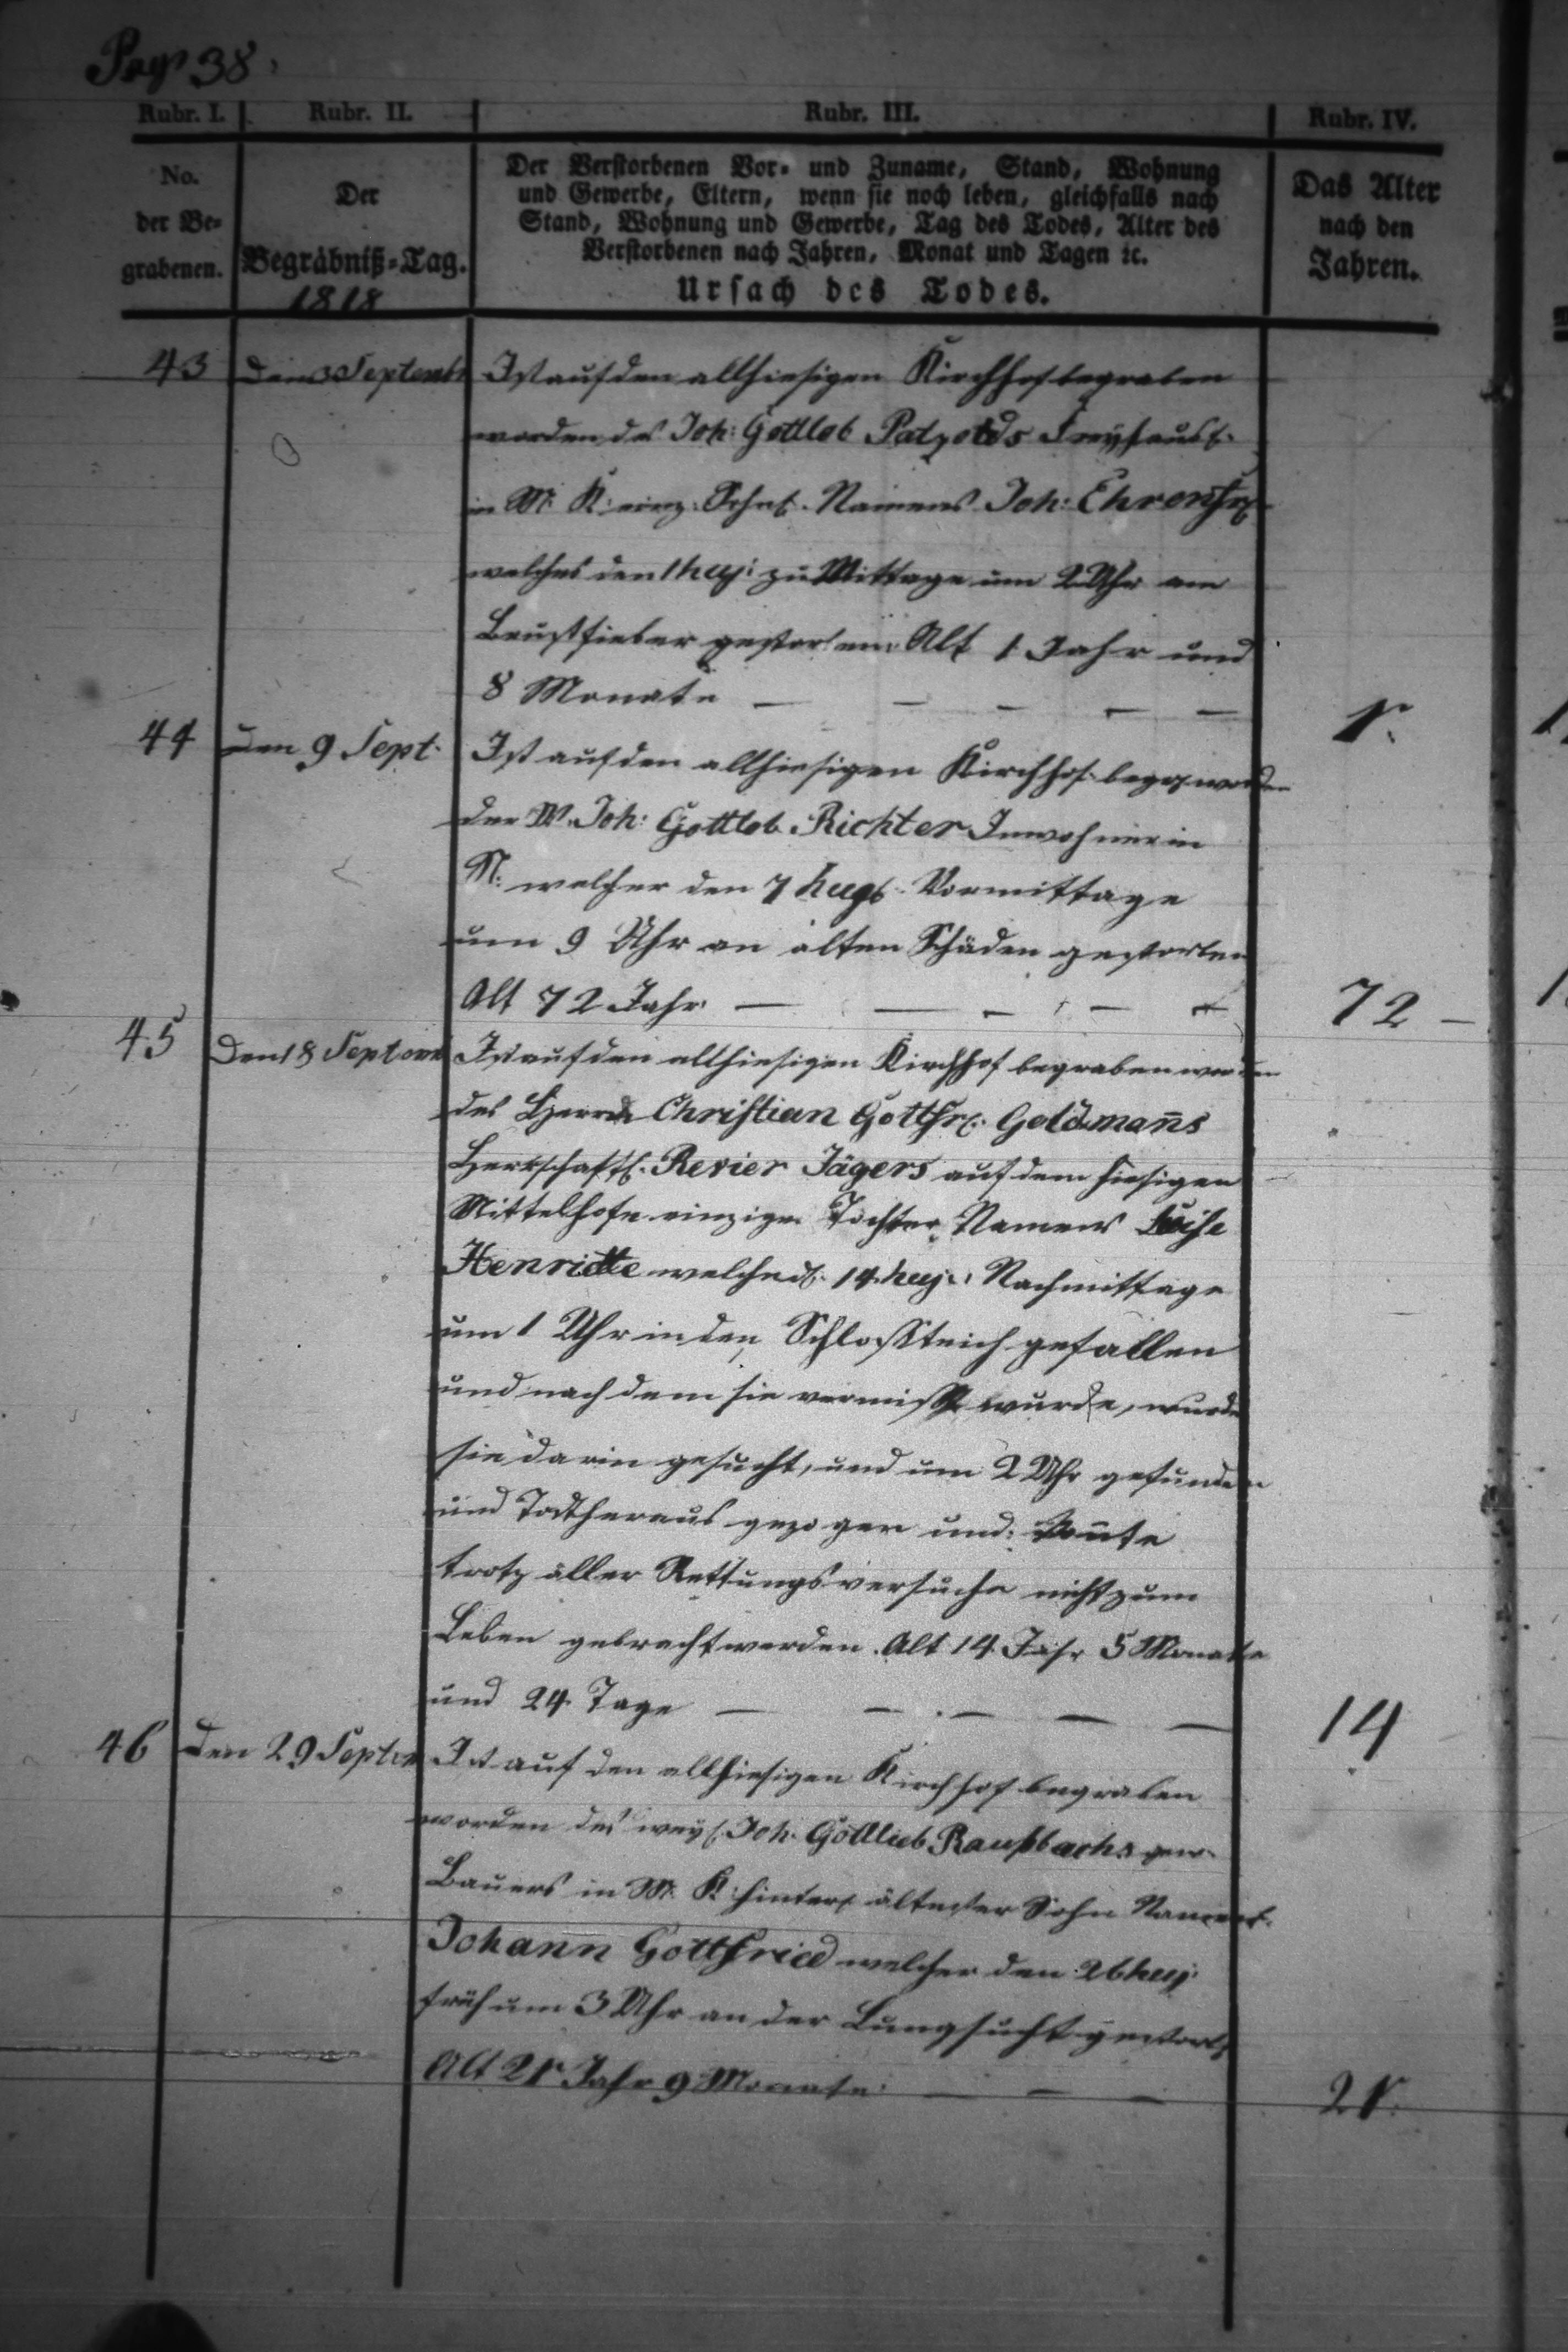 Pag 38.
Rubr. I. Rubr. II. Rubr. III. Rubr. IV.
No. der Be= grabenen.
Der Begräbniß=Tag. 1818
Der Verstorbenen Vor= und Zuname, Stand, Wohnung
und Gewerbe, Eltern, wenn sie noch leben, gleichfalls nach
Stand, Wohnung und Gewerbe, Tag des Todes, Alter des
Verstorbenen nach Jahren, Monat und Tagen ꝛc.
Ursach des Todes.
Das Alter
nach den
Jahren.
43 Den 3 Septembr Ist auf den allhiesigen Kirchhof begraben
worden des Joh: Gottlob Patzolds Freyhäusl.
in M: K: einz. Söhnl. Namens Joh: Ehrenfr
welches den 1 huj: zu Mittage um 2 Uhr am
Brustfieber gestorben: Alt 1 Jahr und
8 Monate — — — — — 1.
44 Den 9 Sept. Ist auf den allhiesigen Kirchhof begr worden
der W. Joh: Gottlob Richter Inwohner in
N: welcher den 7 hujs Vormittage
um 9 Uhr an alten Schäden gestorben
Alt 72 Jahr — — — — — 72 —
45 Den 18 Septem Ist auf den allhiesigen Kirchhof begraben worden
des Herrn Christian Gottfr. Goldman̄s
Herrschaftl. Revier Jägers auf dem hiesigen
Mittelhofe einzige Tochter Namens Luise
Henriette welche d. 14. huj: Nachmittage
um 1 Uhr in den Schloßteich gefallen
und nach dem sie vermißt wurde, wurde
sie darin gesucht, und um 2 Uhr gefunden
und Todt heraus gezogen und: kon̄te
trotz aller Rettungsversuche nicht zum
Leben gebracht werden. Alt 14. Jahr 5 Monate
und 24. Tage — — — — — 14
46 Den 29 Septem Ist auf den allhiesigen Kirchhof begraben
worden des weyl. Joh. Gottlieb Raußbachs gew.
Bauers in M: K: hinterl ältester Sohn Namens
Johann Gottfried welcher den 26 huj:
früh um 3 Uhr an der Lungsucht gestorb
Alt 21 Jahr 9 Monate: — — — 21.